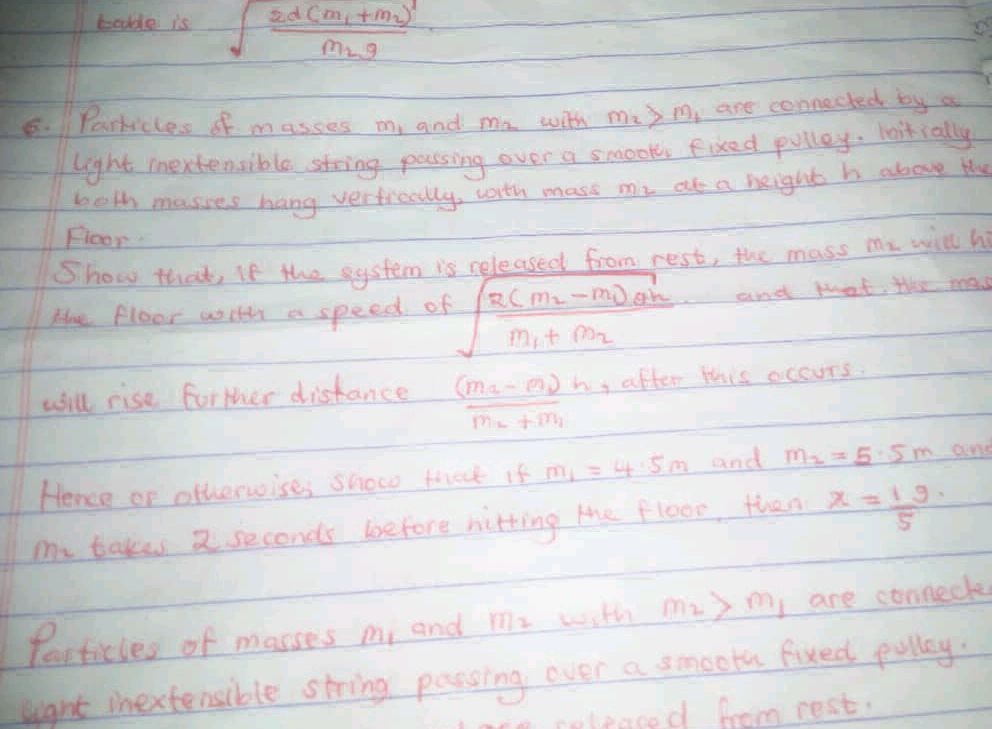 table is √2d(m₁+m₂)
m₂g
6. Particles of masses m₁ and m₂ with m₂ > m₁ are connected by a
light inextensible string passing over a smooth fixed pulley. Initially
both masses hang vertically, with mass m₂ at a height h above the
Floor.
Show that, if the system is released from rest, the mass m₂ will hi
the floor with a speed of √2(m₂-m₁)gh and that the mas
m₁+m₂
will rise further distance (m₂-m₁)h, after this occurs.
m₂+m₁
Hence or otherwise, show that if m₁ = 4.5m and m₂ = 5.5m and
m₂ takes 2 seconds before hitting the floor, then x = 1g.
5
Particles of masses m₁ and m₂ with m₂ > m₁ are connecte
light inextensible string passing over a smooth fixed pulley.
released from rest.